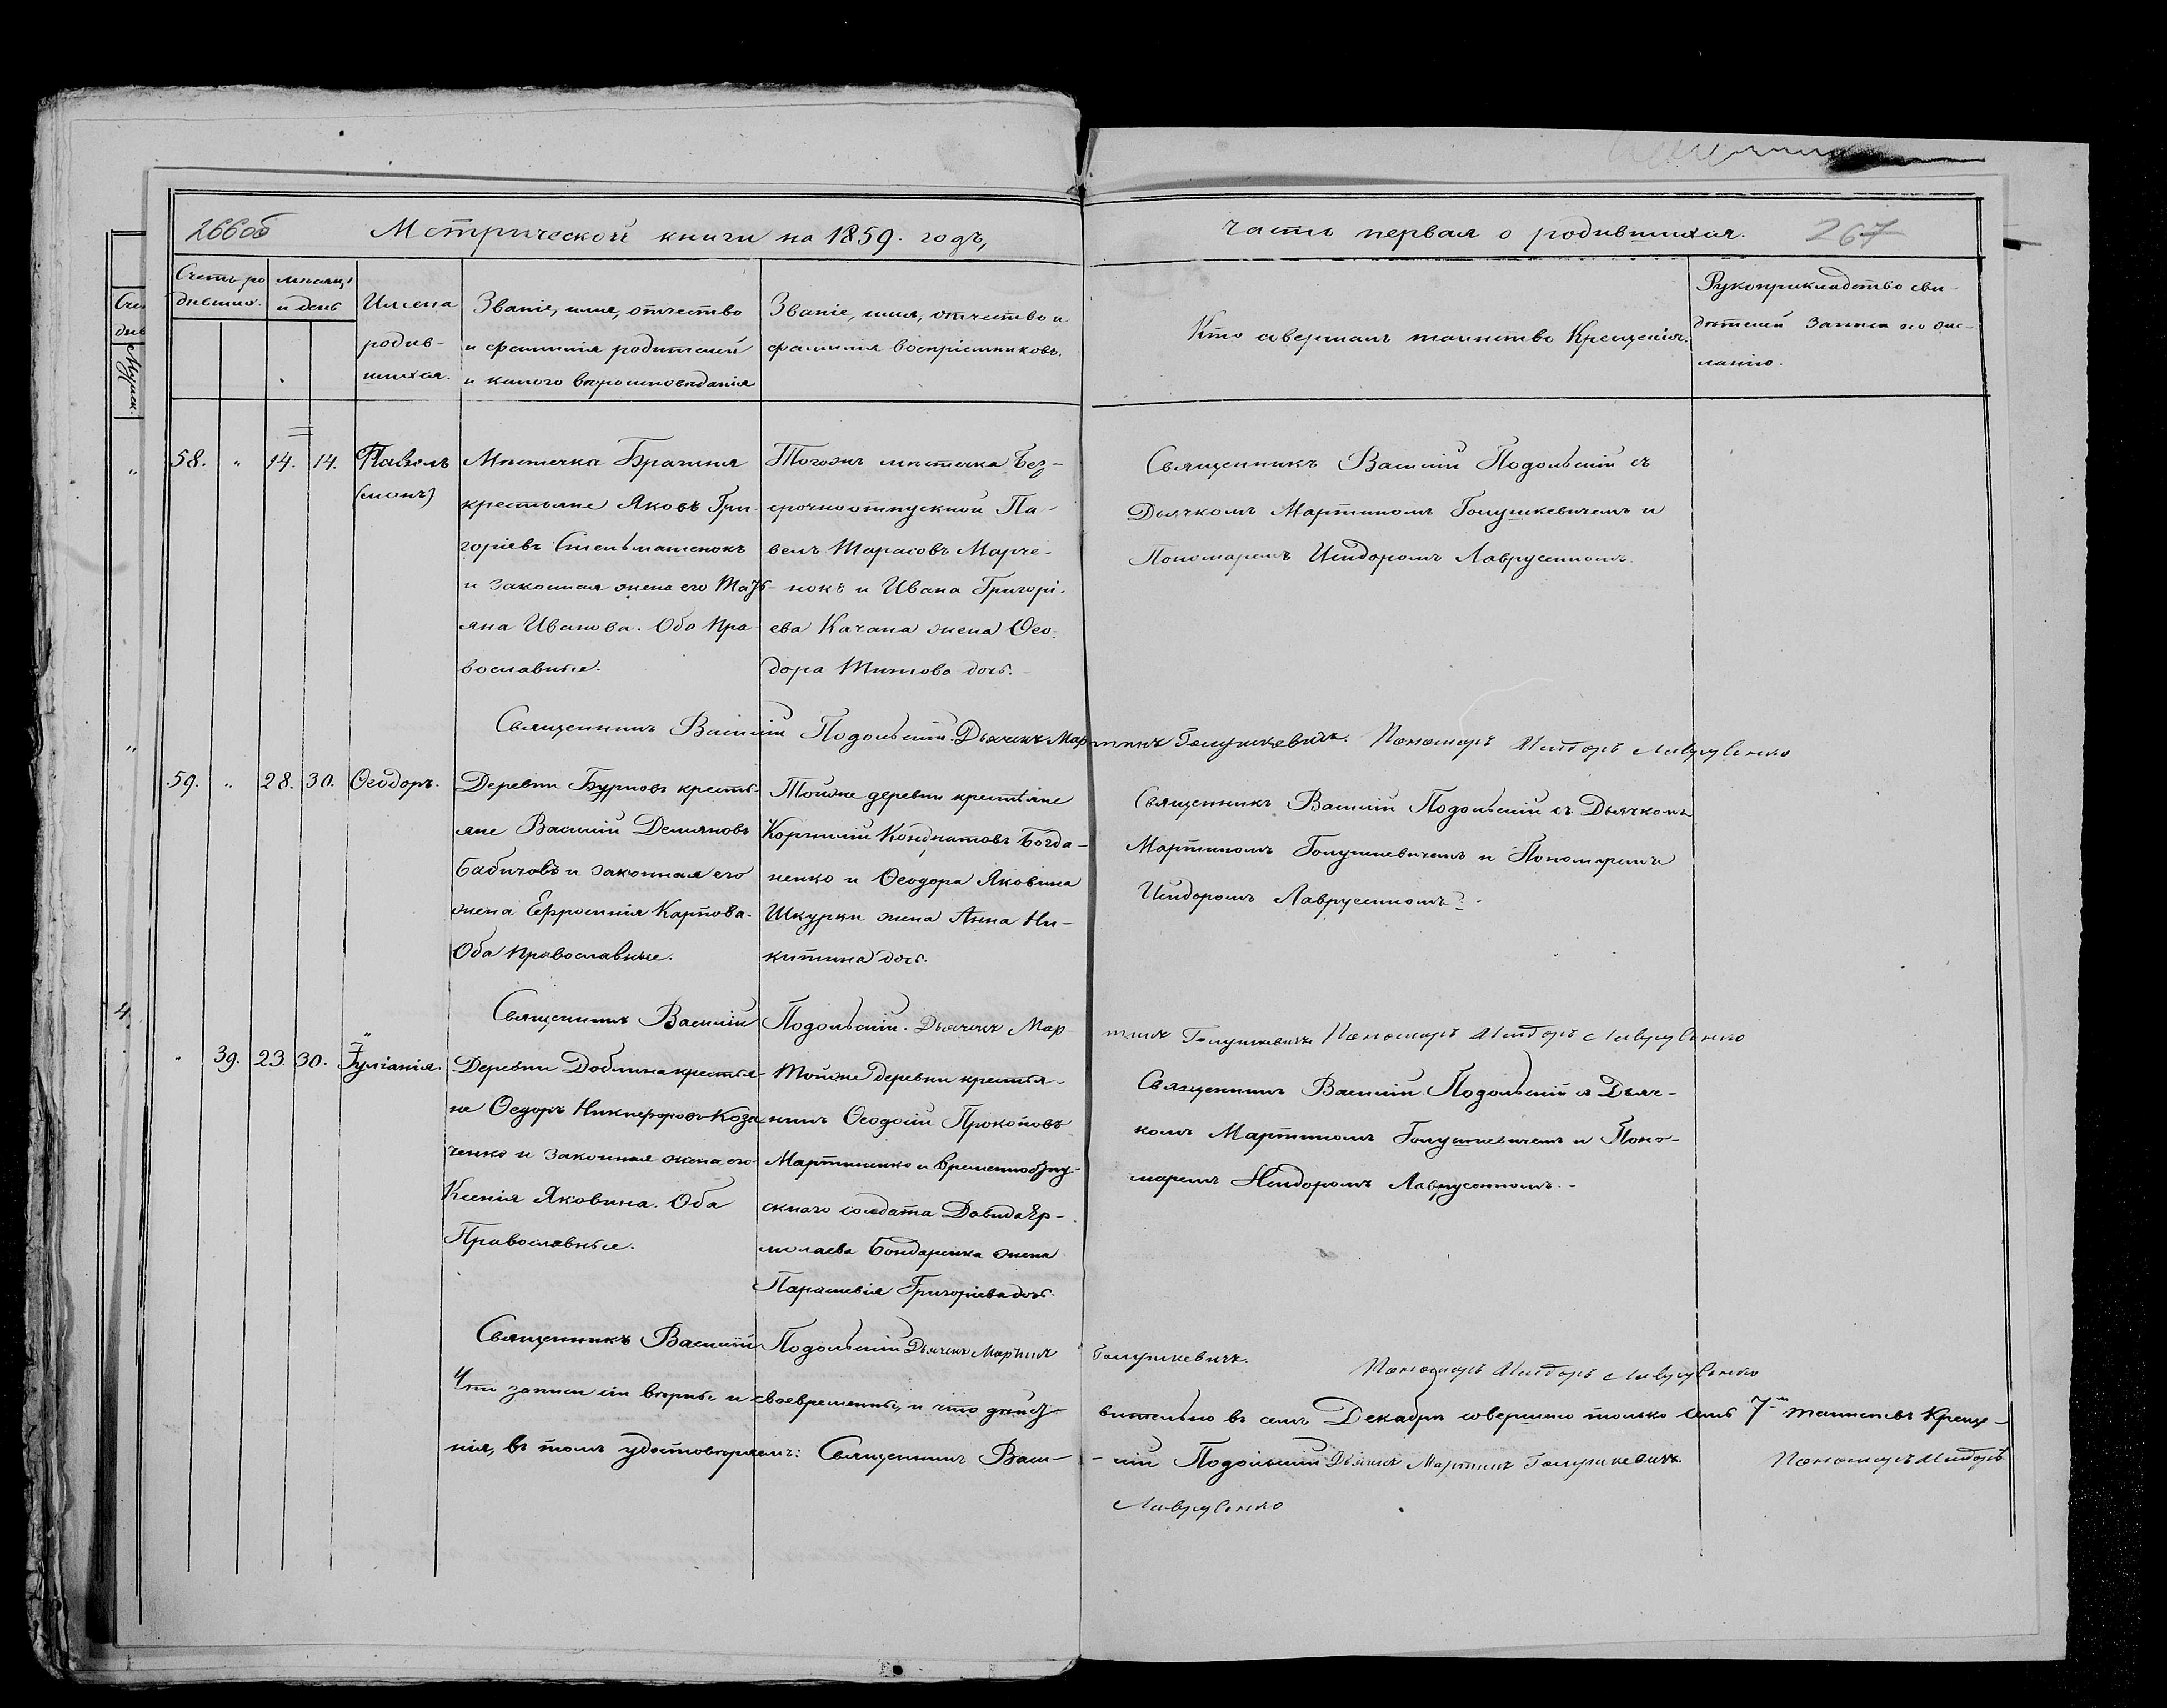 266об
Метрической книги на 1859. годъ,
часть первая о родившихся.
267
Счетъ ро
дивших.
мѣсяцъ
и день
Имена
родив-
шихся.
Званіе, имя, отчество
и фамилія родителей
и какого вѣроисповѣданія
Званіе, имя, отчество и
фамилія воспріемниковъ.
Кто совершалъ таинство Крещенія.
Рукоприкладство сви-
дѣтелей записи по же-
ланію.
Мужск.
58. " 14. 14.
Павелъ
Мѣстечка Брагина
крестьяне Яковъ Гри-
горіевъ Стельмашенокъ
и законная жена его Тать-
яна Иванова. Оба Пра
вославные.
Тогожъ мѣстечка Без-
срочноотпускной Па-
велъ Тарасовъ Марче-
нокъ и Ивана Григорі-
ева Качана жена Ѳео-
дора Титова дочь.
Священникъ Василій Подольскій съ
Дьячкомъ Мартиномъ Голушкевичемъ и
Пономаремъ Исидоромъ Лаврусенкомъ.
Священникъ Василій Подольскій. Дьячекъ Мартинъ Голушкевичъ. Пономарь Исидоръ Лаврусенко
59. " 28. 30.
Ѳеодоръ.
Деревни Бурковъ кресть-
яне Василій Демяновъ
Бабичовъ и законная его
жена Ефросинія Карпова.
Оба православные.
Тойже деревни крестьяне
Корнилій Кондратовъ Богда-
ненко и Ѳеодора Яковина
Шкурки жена Анна Ни-
китина дочь.
Священникъ Василій Подольскій съ Дьячкомъ
Мартиномъ Голушкевичемъ и Пономаремъ
Исидоромъ Лаврусенкомъ.
Священникъ Василій Подольскій. Дьячекъ Мартинъ Голушкевичъ Пономарь Исидоръ Лаврусенко
4.
" 39. 23. 30.
Іуліанія.
Деревни Доблина крестья-
не Ѳедоръ Никифоровъ Коза
ченко и законная жена его
Ксенія Яковина. Оба
Православные.
Тойже деревни крестья-
нинъ Ѳеодосій Прокоповъ
Мартиненко и временноотпу-
скнаго солдата Давида Ер-
молаева Бондаренка жена
Параскевія Григоріева дочь.
Священникъ Василій Подольскій съ Дьяч-
комъ Мартиномъ Голушкевичемъ и Поно-
маремъ Исидоромъ Лаврусенкомъ.-
Священникъ Василій Подольскій Дьячекъ Мартинъ Голушкевичъ. Пономарь Исидоръ Лаврусенко
Что записи сіи вѣрны и своевременны, и что дѣйст- вительно въ семъ Декабрѣ совершено только семь 7-м таинствъ Креще-
нія, въ томъ удостовѣряемъ: Священникъ Васи- -лій Подольскій Дьячекъ Мартинъ Голушкевичъ. Пономарь Исидоръ
Лаврусенко